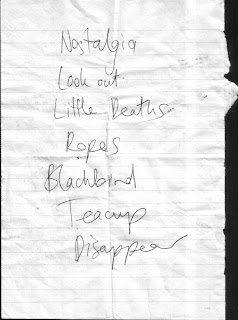 Nostalgia
Look out
Little Deaths
Ropes
Blackbird
Teacup
Disappear